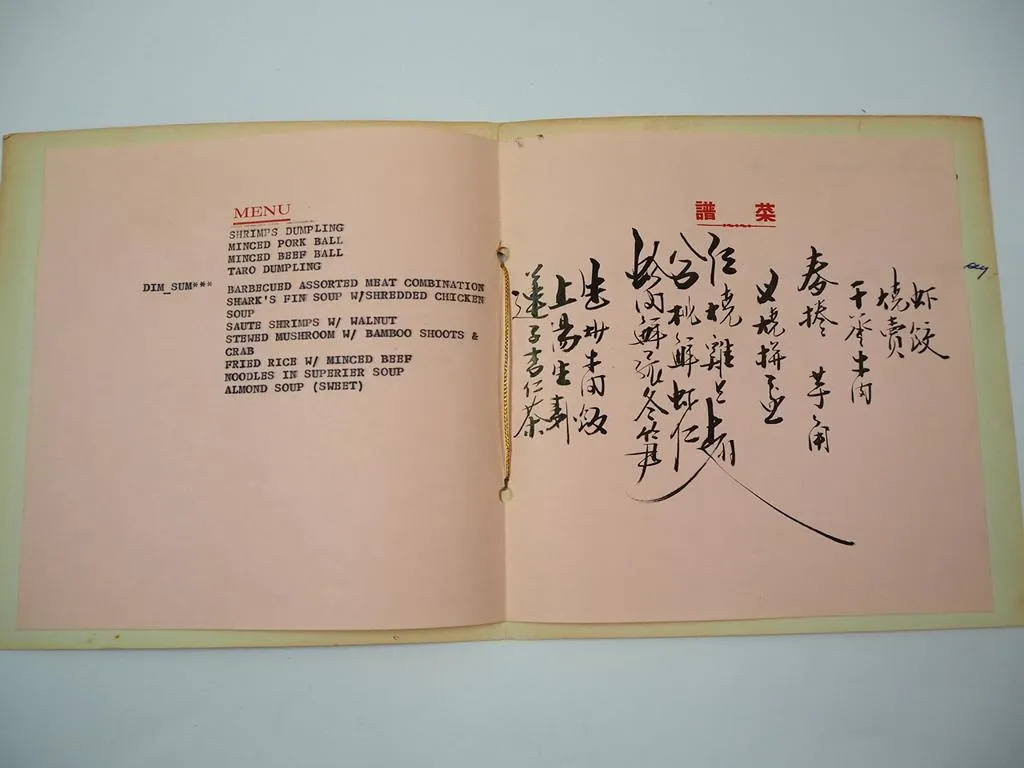 MENU
SHRIMPS DUMPLING
MINCED PORK BALL
MINCED BEEF BALL
TARO DUMPLING
DIM_SUM*** BARBECUED ASSORTED MEAT COMBINATION
SHARK'S FIN SOUP W/SHREDDED CHICKEN
SOUP
SAUTE SHRIMPS W/ WALNUT
STEWED MUSHROOM W/ BAMBOO SHOOTS &
CRAB
FRIED RICE W/ MINCED BEEF
NOODLES IN SUPERIER SOUP
ALMOND SOUP (SWEET)
譜菜
虾餃
燒賣
干蒸牛肉
春捲 芋角
叉燒拼盆
燒雞
桃鮮虾仁
肉鮮菰冬笋
牛肉飯
上湯生麺
蓮子杏仁茶